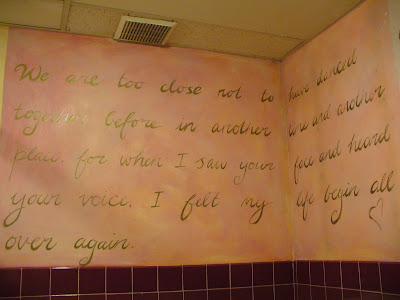 We are too close not to have danced
together before in another time and another
place, for when I saw your face and heard
your voice, I felt my life begin all
over again.